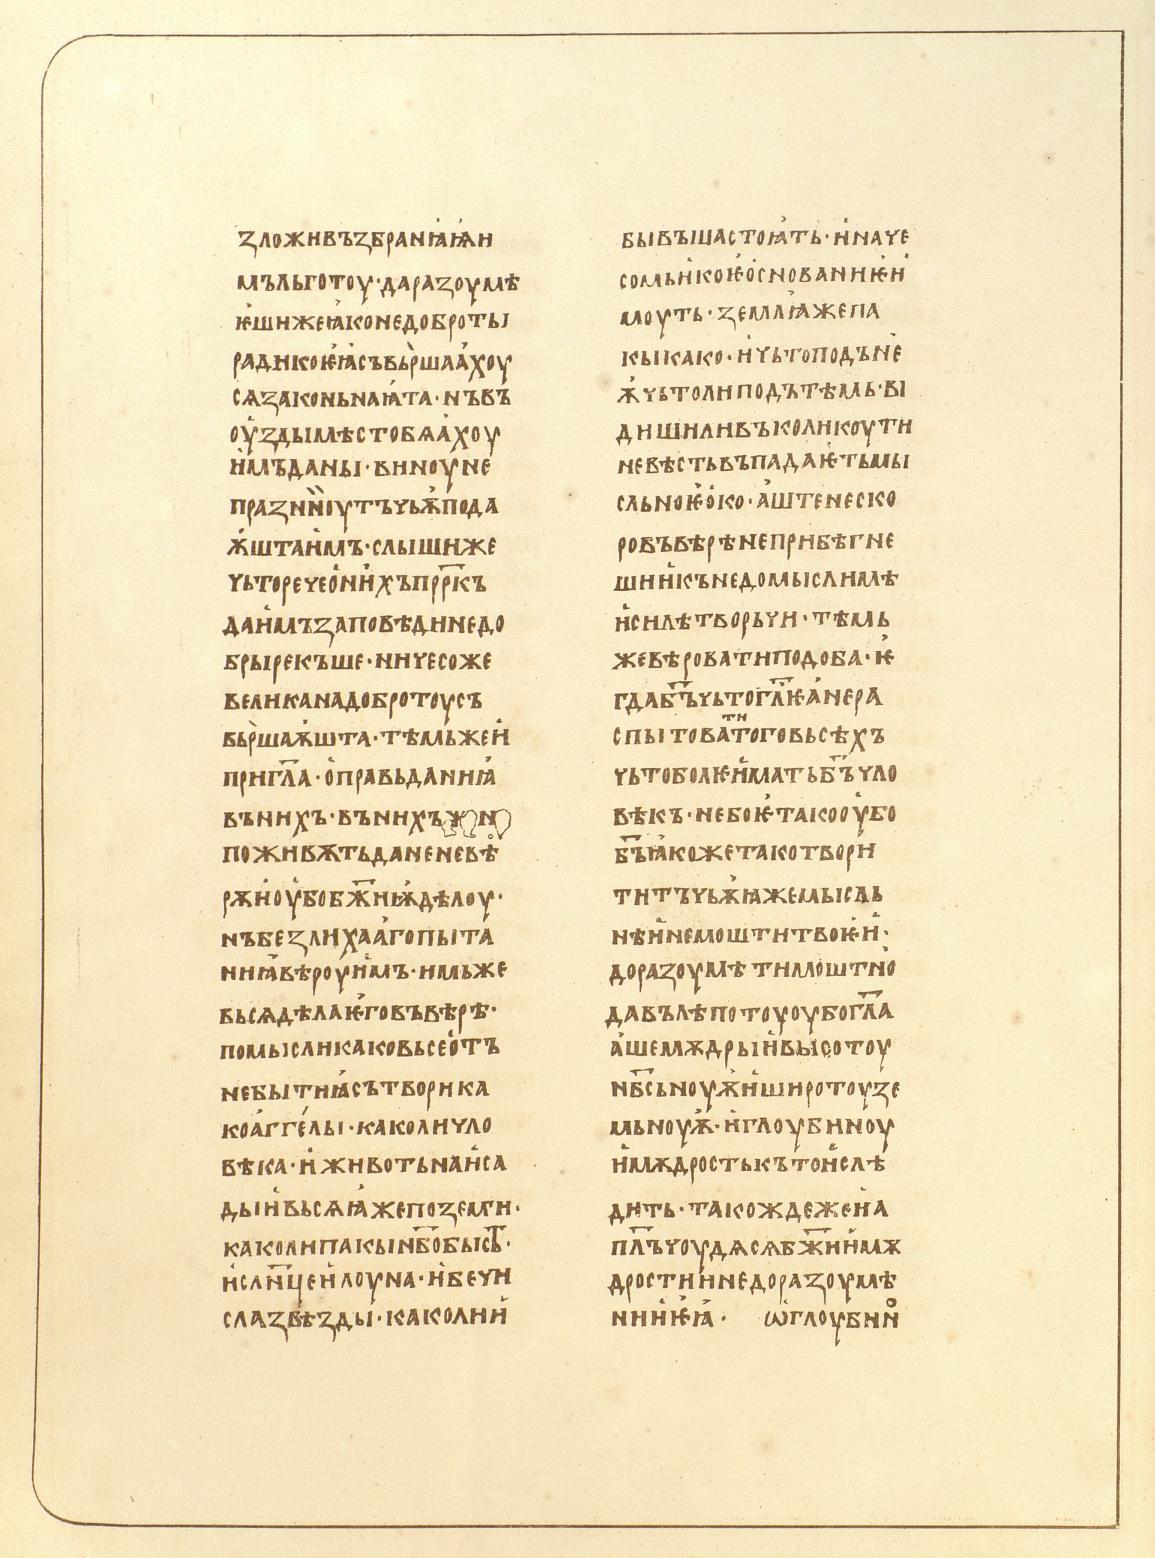 ꙁложивъꙁбраниꙗꙗи
мъльготоу·даразоумѣ
ѥшижеꙗконедоброты
радикоѥꙗсъвьршаахоу
сѧꙁаконьнаꙗта·нъвъ
оуꙁдымѣстобѧахоу
имъданы·виноуне
праꙁнноутъчьѫпода
ѭштаимъ·слышиже
чьторечеонихъпрркъ
даимъꙁаповѣдинедо
брырекъше·ничесоже
великанадобротоусъ
вьршаѭшта·тѣмьжеи
пригла·оправьданиꙗ
вьнихъ·вьнихъжн
поживѫтьданеневѣ
рѫиоубобжиѭдѣлоу·
нъбеꙁлихаагопыта
ниꙗвѣроуимъ·имьже
вьсѧдѣлаѥговъвѣрѣ·
помысликаковьсеотъ
небытиꙗсътворика
коаггелы·каколичло
вѣка·иживотьнаиса
дыивьсѧꙗжепоꙁемги·
каколипакынбобыст·
ислнцеилоуна·ибечи
слаꙁвѣꙁды·каколии
бывъшастоꙗть·иначе
сомьикоѥоснованиѥи
моуть·ꙁемлꙗжепа
кыкако·ичьтоподъне
ѭчьтолиподътѣмь·ви
дишиливъколикоути
невѣстьвъпадаѥтьмы
сльноѥоко·аштенеско
ровъвѣрѣнеприбѣгне
шиикънедомыслимѣ
исилѣтворьчи·тѣмь
жевѣроватиподоба·ѥ
гдабъчьтоглѥанера
спытоватитоговьсѣхъ
чьтоболѥиматьбъчло
вѣкъ·небоѥтакооубо
бъꙗкожетакотвори
титъчьѭꙗжемысль
нѣинемоштитвоѥи·
доразоумѣтимоштно
давълѣпотоуоубогла
ашемѫдрыивысотоу
нбсьноуѭиширотоуꙁе
мьноуѭ·иглоубиноу
имѫдростькътоислѣ
дить·такождежена
плъчоудѧсѧбжиимѫ
дростиинедораꙁоумѣ
нииѥꙗ· ѡглоубино